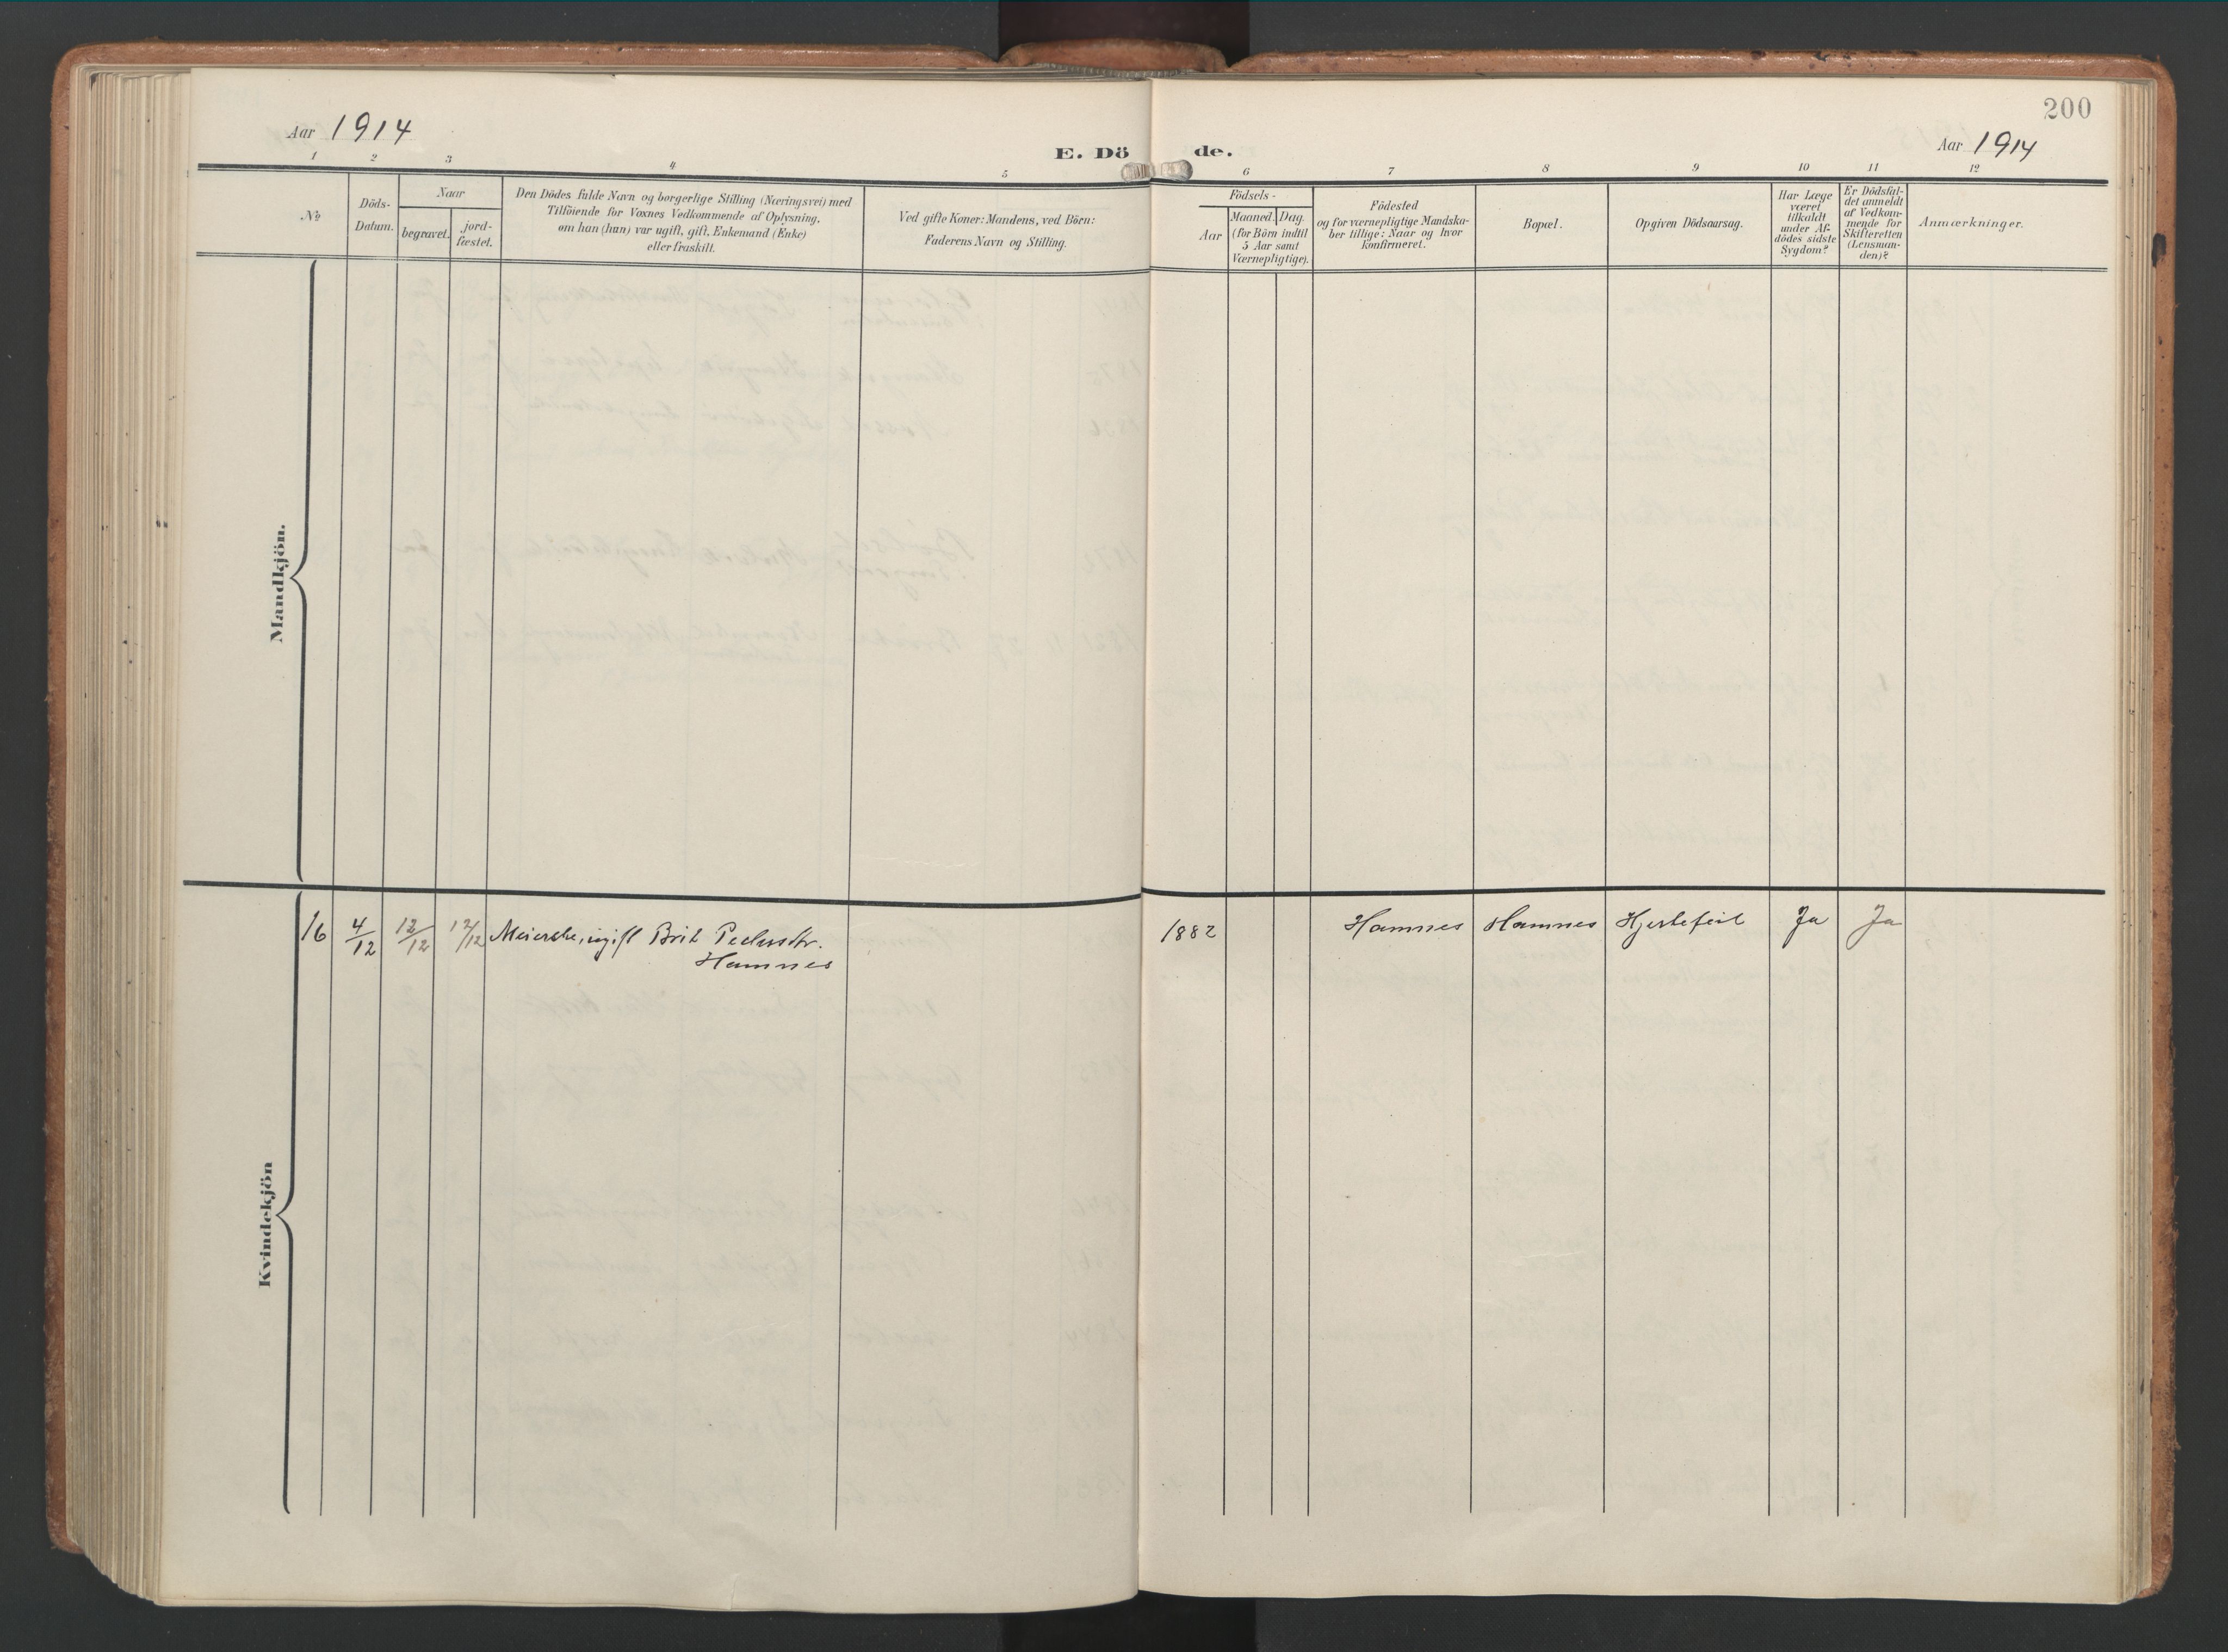 200
Aar 1914
E. Döde.
Aar 1914
1 2 3 4 5 6 7 8 9 10 11 12
№
Döds-
Datum.
Naar
begravet.
jord-
fæstet.
Den Dödes fulde Navn og borgerlige Stilling (Næringsvei) med
Tilföiende for Voxnes Vedkommende af Oplysning,
om han (hun) var ugift, gift, Enkemand (Enke)
eller fraskilt.
Ved gifte Koner: Mandens, ved Börn:
Faderens Navn og Stilling.
Födsels-
Aar
Maaned.
Dag.
(for Börn indtil
5 Aar samt
Værnepligtige).
Födested
og for værnepligtige Mandska-
ber tillige: Naar og hvor
konfirmeret.
Bopæl.
Opgiven Dödsaarsag.
Har Læge
været
tilkaldt
under Af-
dödes sidste
Sygdom?
Er Dödsfal-
det anmeldt
af Vedkom-
mende for
Skifteretten
(Lensman-
den)?
Anmærkninger.
Mandkjön.
Kvindekjön
16 4/12 12/12 12/12 Meierske, ugift Brit Pedersdtr. 1882 Hamnes Hamnes Hjertefeil Ja Ja
Hamnes